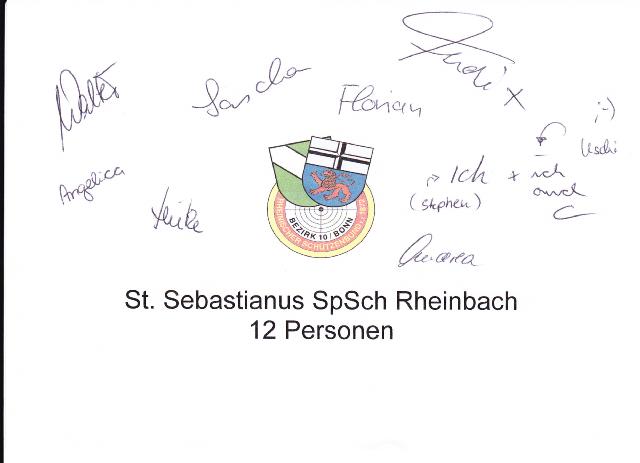 Walter
Sascha
Florian
Angelica
Heike
Ich
(Stephen)
+ ich
auch
;-)
Uschi
Andrea
RHEINISCHER SCHÜTZENBUND
BEZIRK 10 / BONN
St. Sebastianus SpSch Rheinbach
12 Personen